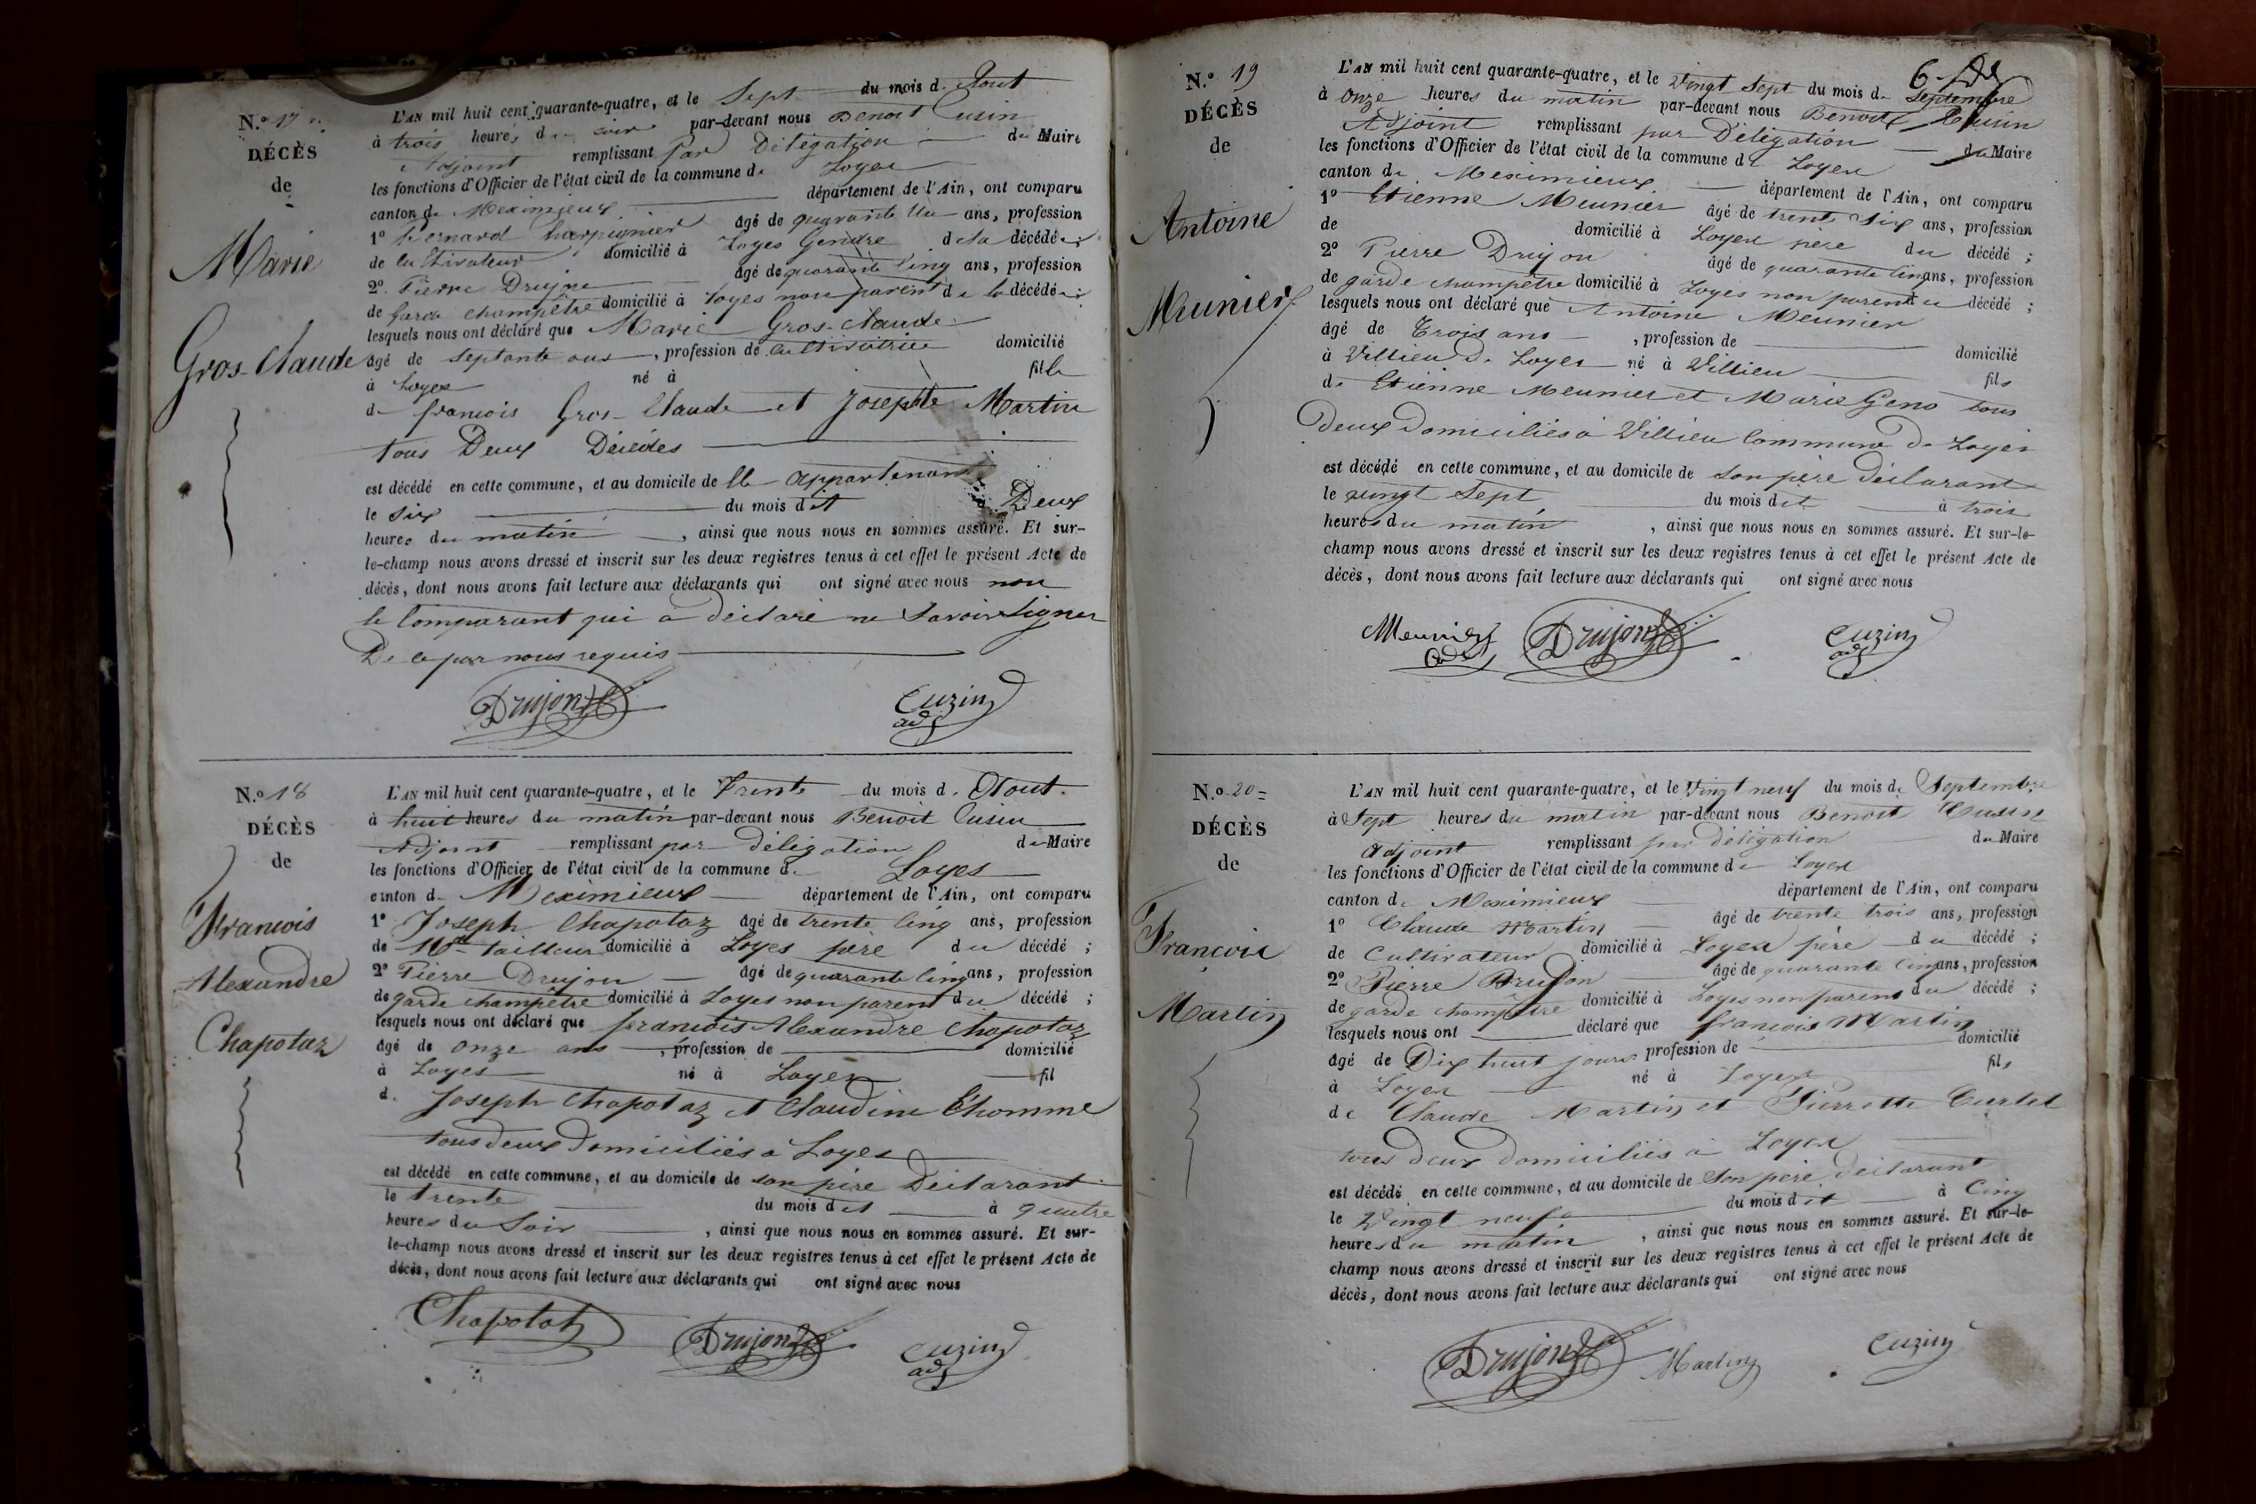 N.º 17
DÉCÈS
de
Marie
Gros-Claude
L'AN mil huit cent quarante-quatre, et le Sept du mois d. Aout
à trois heures du soir par-devant nous Benoit Cusin
Adjoint remplissant par Délégation du Maire
les fonctions d'Officier de l'état civil de la commune de Loyes
canton de Meximieux département de l'Ain, ont comparu
1º Bernard âgé de quarante un ans, profession
de Cultivateur domicilié à Loyes Gendre de la décédée ;
2º Pierre Drujon âgé de quarante Cinq ans, profession
de Garde champêtre domicilié à Loyes non parent de la décédée ;
lesquels nous ont déclaré que Marie Gros-Claude
âgé de septante ans, profession de Cultivatrice domicilié
à Loyes né à fille
de francois Gros-Claude et Josephte Martin
tous Deux Décédés
est décédé en cette commune, et au domicile de lle appartenant
le six du mois dit à Deux
heures du matin, ainsi que nous nous en sommes assuré. Et sur-
le-champ nous avons dressé et inscrit sur les deux registres tenus à cet effet le présent Acte de
décès, dont nous avons fait lecture aux déclarants qui ont signé avec nous non
le Comparant qui a déclaré ne Savoir Signer
De ce par nous requis
Drujon Cuzin
adj
N.º 18
DÉCÈS
de
Francois
Alexandre
Chapotaz
L'AN mil huit cent quarante-quatre, et le Trente du mois d. Aout
à huit heures du matin par-devant nous Benoit Cusin
Adjoint remplissant par délégation du Maire
les fonctions d'Officier de l'état civil de la commune de Loyes
canton de Meximieux département de l'Ain, ont comparu
1º Joseph Chapotaz âgé de trente Cinq ans, profession
de Md tailleur domicilié à Loyes père du décédé ;
2º Pierre Drujon âgé de quarante Cinq ans, profession
de garde champêtre domicilié à Loyes non parent du décédé ;
lesquels nous ont déclaré que francois Alexandre Chapotaz
âgé de onze ans, profession de domicilié
à Loyes né à Loyes fil
d. Joseph Chapotaz et Claudine L'homme
tous deux Domiciliés a Loyes
est décédé en cette commune, et au domicile de son père Déclarant
le trente du mois dit à quatre
heures du Soir, ainsi que nous nous en sommes assuré. Et sur-
le-champ nous avons dressé et inscrit sur les deux registres tenus à cet effet le présent Acte de
décès, dont nous avons fait lecture aux déclarants qui ont signé avec nous
Chapotat Drujon Cuzin
adj
6
N.º 19
DÉCÈS
de
Antoine
Meunier
L'AN mil huit cent quarante-quatre, et le Vingt Sept du mois de Septembre
à onze heures du matin par-devant nous Benoit Cusin
Adjoint remplissant par Délégation du Maire
les fonctions d'Officier de l'état civil de la commune de Loyes
canton de Meximieux département de l'Ain, ont comparu
1º Etienne Meunier âgé de trente Six ans, profession
de domicilié à Loyes père du décédé ;
2º Pierre Drujon âgé de quarante Cinq ans, profession
de garde champêtre domicilié à Loyes non parent du décédé ;
lesquels nous ont déclaré que Antoine Meunier
âgé de Trois ans, profession de domicilié
à Villieu de Loyes né à Villieu fils
de Etienne Meunier et Marie Geno tous
deux Domiciliés à Villieu Commune de Loyes
est décédé en cette commune, et au domicile de son père déclarant
le vingt Sept du mois dit à trois
heures du matin, ainsi que nous nous en sommes assuré. Et sur-le-
champ nous avons dressé et inscrit sur les deux registres tenus à cet effet le présent Acte de
décès, dont nous avons fait lecture aux déclarants qui ont signé avec nous
Meunier Drujon Cuzin
adj
N.º 20
DÉCÈS
de
Francois
Martin
L'AN mil huit cent quarante-quatre, et le Vingt neuf du mois de Septembre
à Sept heures du matin par-devant nous Benoit Cusin
adjoint remplissant par délégation du Maire
les fonctions d'Officier de l'état civil de la commune de Loyes
canton de Meximieux département de l'Ain, ont comparu
1º Claude Martin âgé de trente trois ans, profession
de Cultivateur domicilié à Loyes père du décédé ;
2º Pierre Drujon âgé de quarante Cinq ans, profession
de garde champêtre domicilié à Loyes non parent du décédé ;
lesquels nous ont déclaré que francois Martin
âgé de Dix huit jours profession de domicilié
à Loyes né à Loyes fils
de Claude Martin et Pierrette Curtet
tous deux domiciliés à Loyes
est décédé en cette commune, et au domicile de Son père déclarant
le Vingt neuf du mois dit à Cinq
heures du matin, ainsi que nous nous en sommes assuré. Et sur-le-
champ nous avons dressé et inscrit sur les deux registres tenus à cet effet le présent Acte de
décès, dont nous avons fait lecture aux déclarants qui ont signé avec nous
Drujon Martin Cuzin